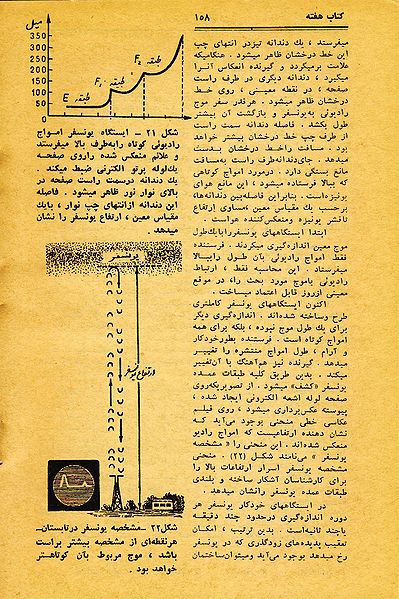 کتاب هفته
۱۵۸
میفرستد ، یك دندانه تیزدر انتهای چپ
این خط درخشان ظاهر میشود . هنگامیکه
علامت برمیگردد و گیرنده انعکاس آنرا
میگیرد ، دندانه دیگری در طرف راست
صفحه ، در نقطه معینی ، روی خط
درخشان ظاهر میشود . هرقدر سفر موج
رادیوئی به‌یونسفر و بازگشت آن بیشتر
طول بکشد ، فاصله دندانه سمت راست
از طرف چپ خط درخشان بیشتر خواهد
بود . مسافت راخط درخشان بدست
میدهد . جای‌دندانه‌طرف راست به‌مسافت
مانع بستگی دارد . درمورد امواج کوتاهی
که ببالا فرستاده میشود ، این مانع هوای
یونیزه‌است. بنابراین فاصله‌بین دندانه‌ها،
برحسب یك مقیاس معین ، مساوی ارتفاع
ناقشر یونیزه ومنعکس‌کننده هواست .
ابتدا ایستگاههای یونسفررابایك‌طول
موج معین اندازه‌گیری میکردند . فرستنده
فقط امواج رادیوئی بآن طول راببالا
میفرستاد . این محاسبه فقط ، ارتباط
رادیوئی باموج مورد بحث را، در موقع
معینی ازروز قابل اعتماد میساخت .
اکنون ایستگاههای یونسفر کاملتری
طرح وساخته شده‌اند . اندازه‌گیری دیگر
برای یك طول موج نبوده ، بلکه برای همه
امواج کوتاه است . فرستنده بطورخودکار
و آرام ، طول امواج منتشره را تغییر
میدهد . گیرنده نیز هم‌آهنگ با آن‌تغییر
میکند . بدین طریق کلیه طبقات عمده
یونسفر «کشف» میشود . از تصویریکه‌روی
صفحه لوله اشعه الکترونی ایجاد شده ،
پیوسته عکس‌برداری میشود ، روی فیلم
عکاسی خطی منحنی بوجود میآید که
نشان دهنده ارتفاعیست که امواج رادیو
منعکس شده‌اند . این منحنی را « مشخصه
یونسفر » می‌نامند شکل (۲۲) . منحنی
مشخصه یونسفر اسرار ارتفاعات بالا را
برای کارشناسان آشکار ساخته و بلندی
طبقات عمده یونسفر رانشان میدهد .
در ایستگاههای خودکار یونسفر هر
دوره اندازه‌گیری درحدود چند دقیقه
یاچند ثانیه‌است . بدین ترتیب ، امکان
تعقیب پدیده‌های زودگذری که در یونسفر
رخ میدهد بوجود می‌آید ومیتوان‌ساختمان
میل
350
300
250
200
150
100
50
0
E طبقه
F₁ طبقه
F₂ طبقه
شکل ۲۱ – ایستگاه یونسفر امواج
رادیوئی کوتاه رابه‌طرف بالا میفرستد
و علائم منعکس شده راروی صفحـه
یك‌لوله پرتو الکترنی ضبط میکند .
یك دندانه درسمت راست صفحه در
بالای نوار نور ظاهر میشود . فاصله
این دندانه ازانتهای چپ نوار ، بایك
مقیاس معین ، ارتفاع یونسفر را نشان
میدهد .
یونسفر
ارتفاع یونسفر
شکل۲۲ـ مشخصه یونسفر درتابستان ـ
هرنقطه‌ای از مشخصه بیشتر براست
باشد ، موج مربوط بآن کوتاهتر
خواهد بود .